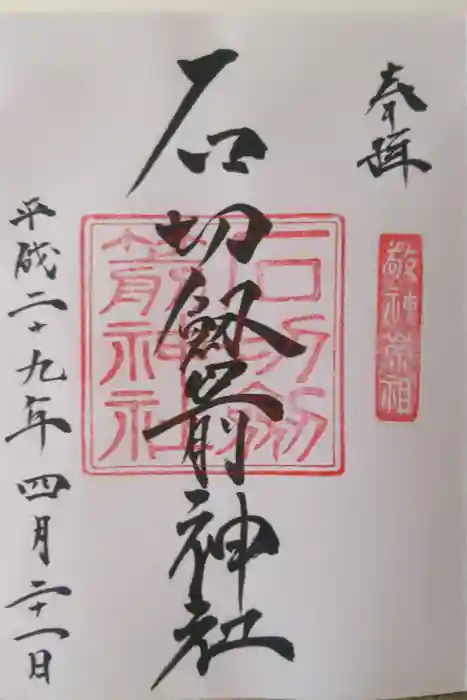 奉拝
敬神崇祖
石切劔箭神社
石切劔箭神社
平成二十九年四月二十一日